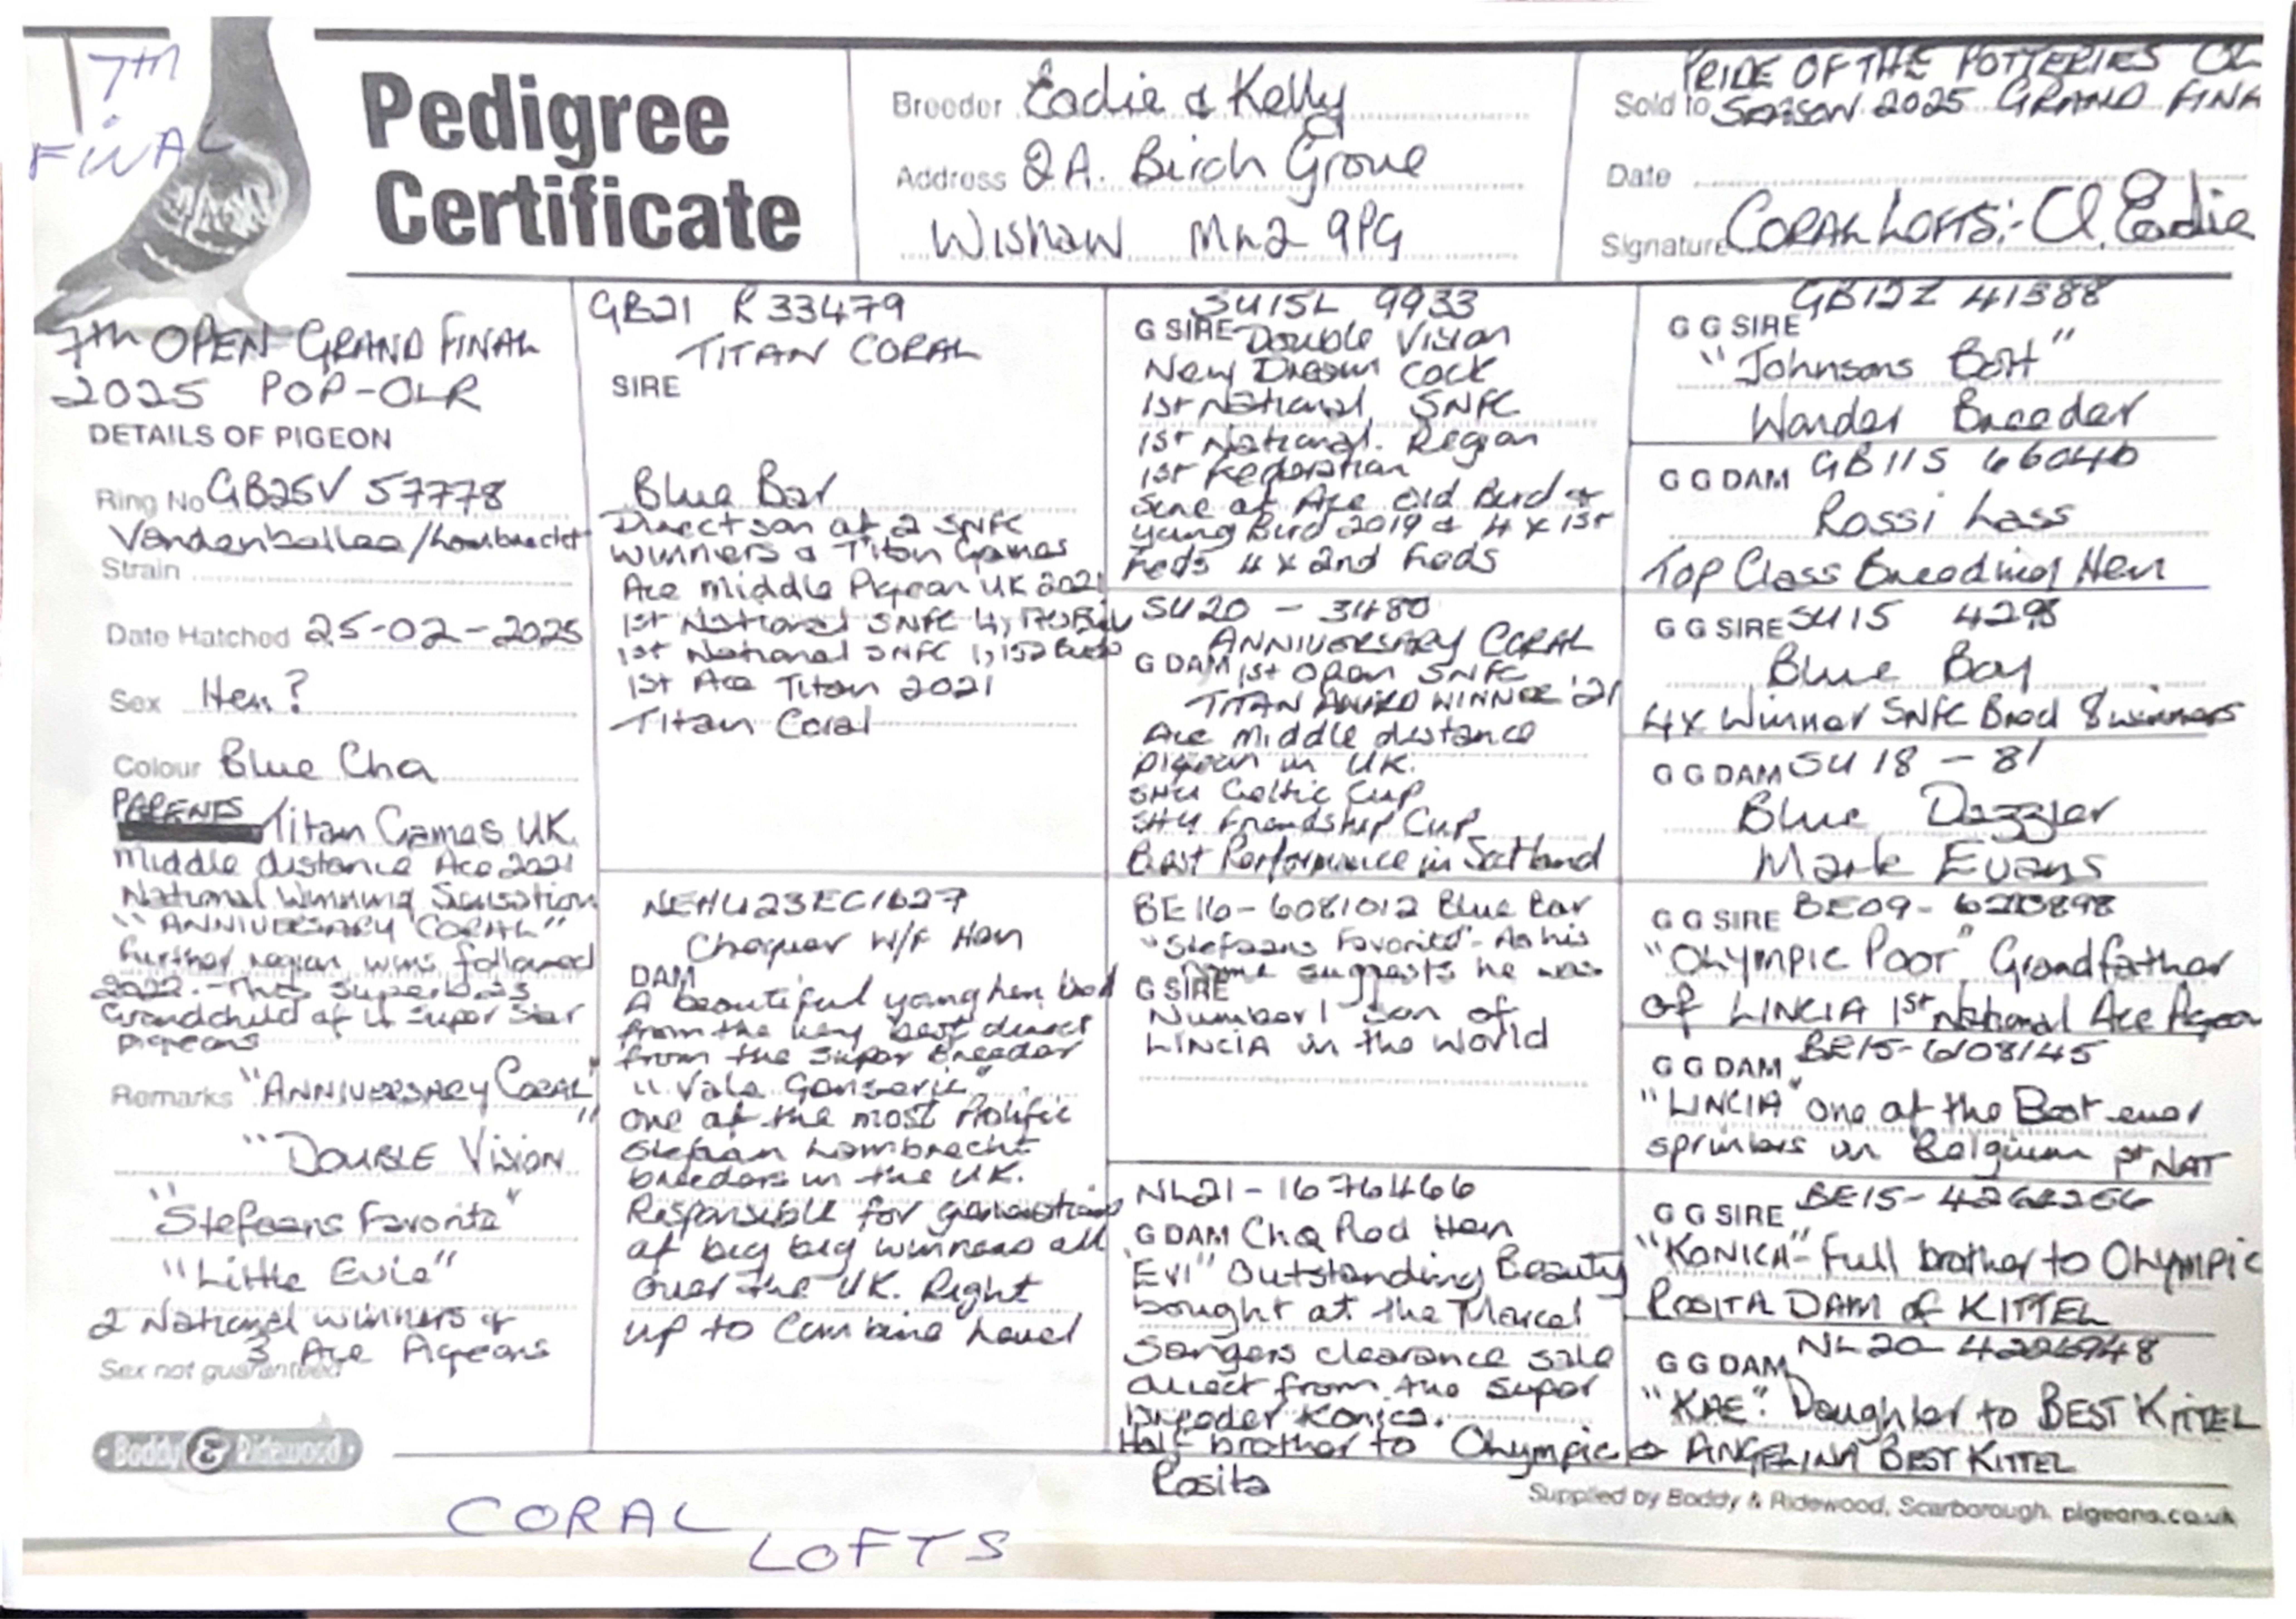 7TH
FINAL
Pedigree
Certificate
Breeder Eadie & Kelly
Address 2A. Birch Grove
Wishaw ML2 9PG
PRIDE OF THE POTTERIES OL
Sold to SEASON 2025 GRAND FINA
Date
Signature CORAL LOFTS:- Cl. Eadie
7TH OPEN GRAND FINAL
2025 POP-OLR
DETAILS OF PIGEON
Ring No GB25V 57778
Vandenballee/Lambrecht
Strain
Date Hatched 25-02-2025
Sex Hen?
Colour Blue Cha
PARENTS
Titan Games UK.
Middle distance Ace 2021
National Winning Sensation
"ANNIVERSARY CORAL"
further region wins followed
2022. This superb is
Grandchild of 4 super star
pigeons
Remarks "ANNIVERSARY CORAL"
"DOUBLE VISION
"Stefaans Favorite"
"Little Evie"
2 National winners &
3 Ace Pigeons
Sex not guaranteed
Boddy & Ridewood
GB21 R 33479
TITAN CORAL
SIRE
Blue Bar
Direct son of 2 SNFC
winners & Titan Games
Ace Middle Pigeon UK 2021
1st National SNFC
1st National SNFC 1,152 Birds
1st Ace Titan 2021
Titan Coral
NEHU23EC1627
Chequer W/F Hen
DAM
A beautiful young hen bred
from the very best direct
from the super breeder
"Vale Genseric"
one of the most Prolific
Stefaan Lambrecht
breeders in the UK.
Responsible for generations
of big big winners all
over the UK. Right
up to Combine Level
SU15L 9933
G SIRE Double Vision
New Dream Cock
1st National SNFC
1st National. Region
1st Federation
Sire of Ace Old Bird &
Young Bird 2019 & 4 x 1st
Feds 4 x 2nd Feds
SU20 - 3480
ANNIVERSARY CORAL
G DAM 1st Open SNFC
TITAN AWARD WINNER '21
Ace Middle distance
pigeon in UK.
SHU Celtic Cup
SHU Friendship Cup
Best Performance in Scotland
BE16-6081012 Blue Bar
"Stefaans Favorite" - As his
name suggests he was
G SIRE
Number 1 son of
LINCIA in the World
NL21-1676466
G DAM Chq Red Hen
"EVI" Outstanding Beauty
bought at the Marcel
Sangers clearance sale
direct from the super
breeder Konica.
Half brother to Olympic
Rosita
GB12Z 41388
G G SIRE
"Johnsons Bolt"
Wonder Breeder
G G DAM GB11S 66046
Rossi Lass
Top Class Breeding Hen
G G SIRE SU15 4298
Blue Boy
4x Winner SNFC Bred 8 winners
G G DAM SU 18 - 81
Blue Dazzler
Mark Evans
G G SIRE BE09-
"OLYMPIC POOT" Grandfather
of LINCIA 1st National Ace Pigeon
G G DAM BE15-6108145
"LINCIA" one of the Best ever
sprinters in Belgium 1st NAT
G G SIRE BE15-
"KONICA" - Full brother to Olympic
ROSITA DAM of KITTEL
NL20-
G G DAM
"KAE". Daughter to BEST KITTEL
& ANGELINA BEST KITTEL
Supplied by Boddy & Ridewood, Scarborough. pigeons.co.uk
CORAL
LOFTS